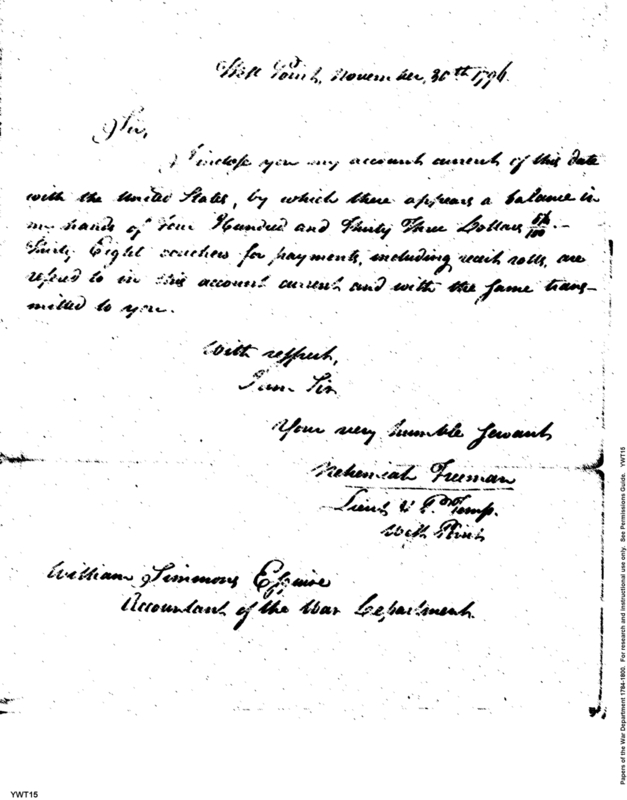 West Point, November, 30th 1796.
Sir,
I inclose you my account current of this date
with the United States, by which there appears a balance in
my hands of Four Hundred and Thirty Three Dollars /100.-
Thirty Eight vouchers for payments, including receit rolls, are
refered to in this account current and with the same trans-
mitted to you.
With respect,
I am Sir
Your very humble Servant
Nehemiah Freeman
Lieut &
West Point
William Simmons Esquire
Accountant of the War Department.
Papers of the War Department 1784-1800. For research and instructional use only. See Permissions Guide. YWT15
YWT15